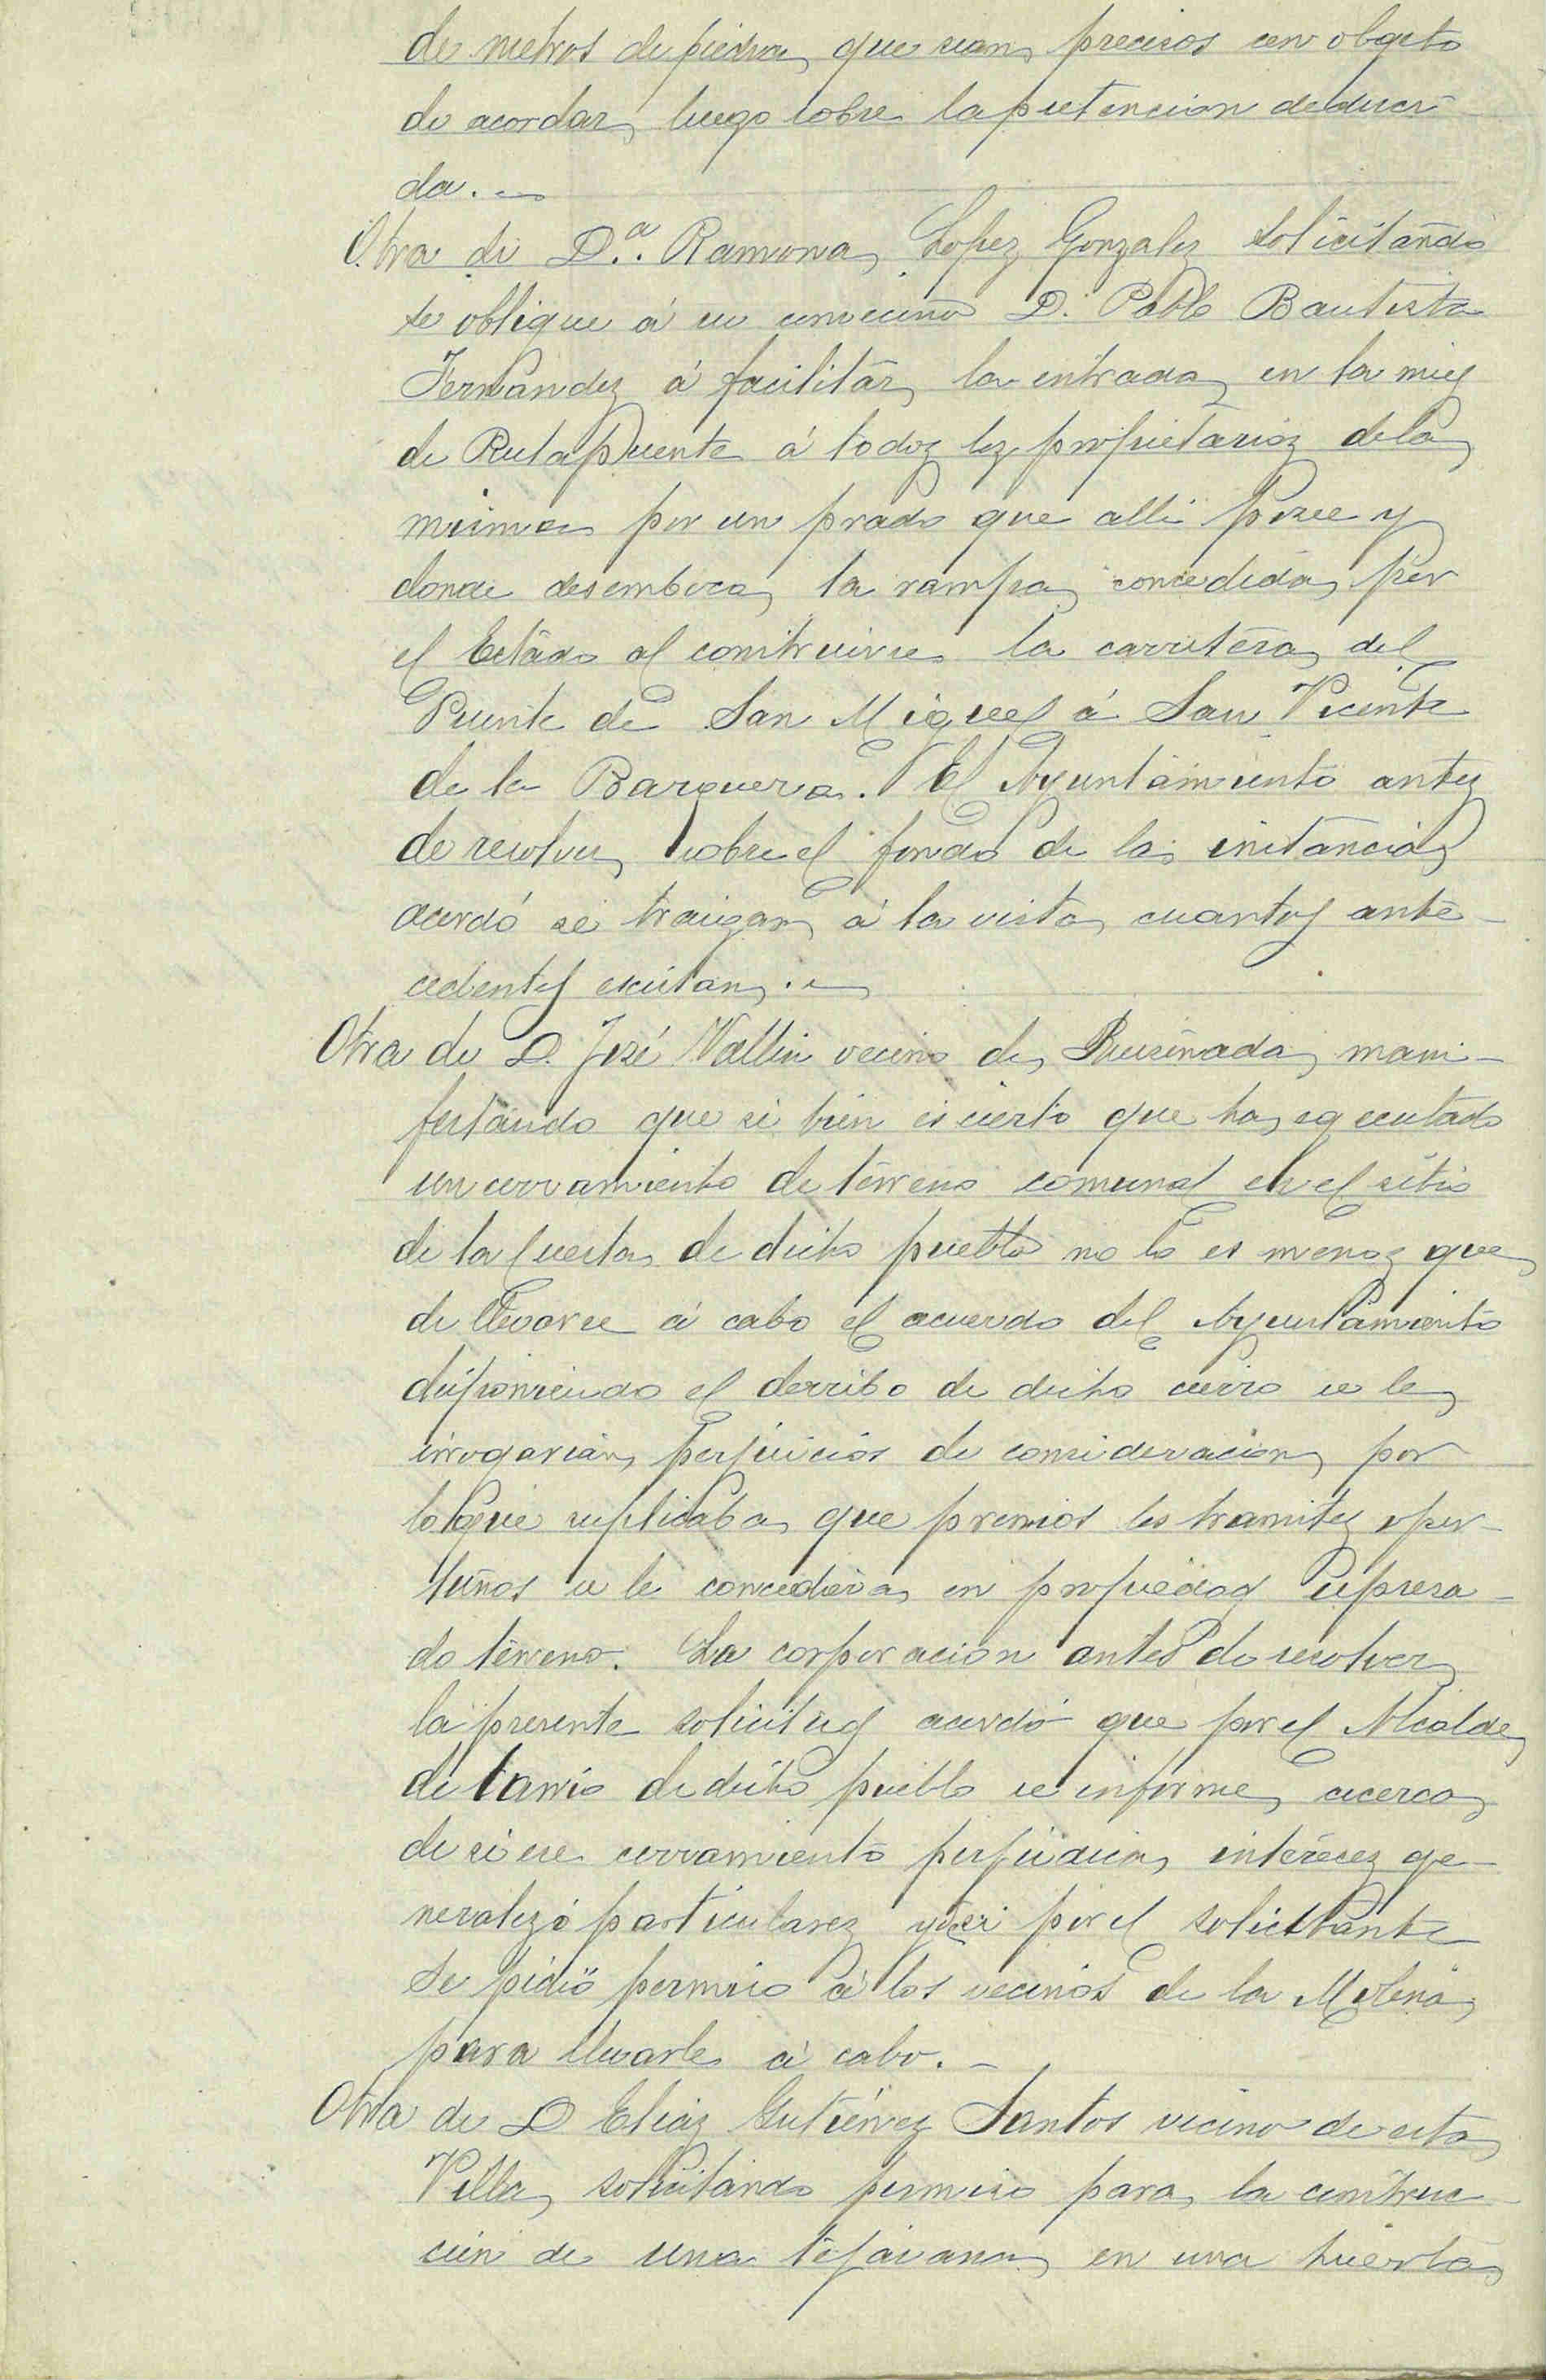 de metros de piedra que sean precisos con objeto
de acordar luego sobre la pretencion deduci-
da.
Otra de D.ª Ramona Lopez Gonzalez solicitando
se obligue á su convecino D. Pablo Bautista
Fernandez á facilitar la entrada en la mies
de Rutapuente á todos los propietarios de la
misma por un prado que alli posee y
donde desemboca la rampa concedida por
el Estado al construirse la carretera del
Puente de San Miguel á San Vicente
de la Barquera. El Ayuntamiento antes
de resolver sobre el fondo de la instancia
acordó se traigan á la vista cuantos ante-
cedentes existan.
Otra de D. José Vallin vecino de Ruiseñada mani-
festando que si bien es cierto que ha egecutado
un cerramiento de terreno comunal en el sitio
de la Cuesta de dicho pueblo no lo es menos que
de llevarse á cabo el acuerdo del Ayuntamiento
disponiendo el derribo de dicho cierro se le
irrogarian perjuicios de consideracion por
lo que suplicaba que premios los tramites opor-
tunos se le concediera en propiedad expresa-
do terreno. La corporacion antes de resolver
la presente solicitud acordó que por el Alcalde
de barrio de dicho pueblo se informe acerca
de si ese cerramiento perjudica intereses ge-
nerales ó particulares y si por el solicitante
se pidió permiso á los vecinos de la Molena
para llevarle á cabo.
Otra de D Elias Gutiérrez Santos vecino de esta
Villa solicitando permiso para la construc-
cion de una tejavana en una huerta